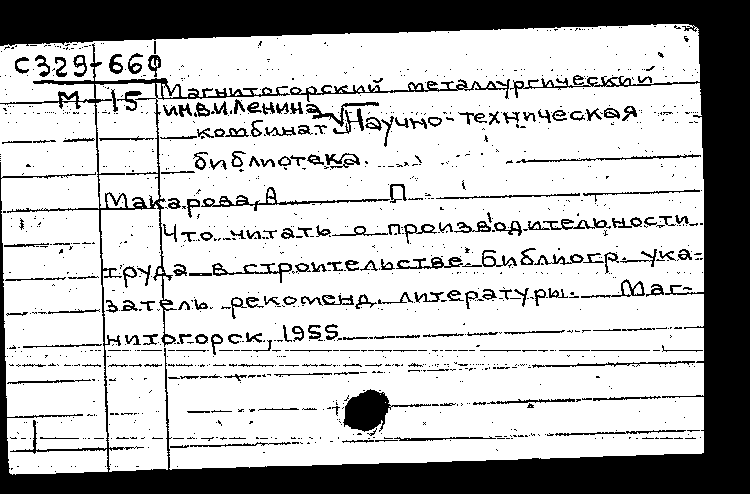 С329-660
М-15
Магнитогорский металлургический
им.В.И.Ленина
комбинат. Научно-техническая
библиотека.
Макарова, А П
Что читать о производительности
труда в строительстве. Библиогр. ука-
затель рекоменд. литературы. Маг-
нитогорск, 1955